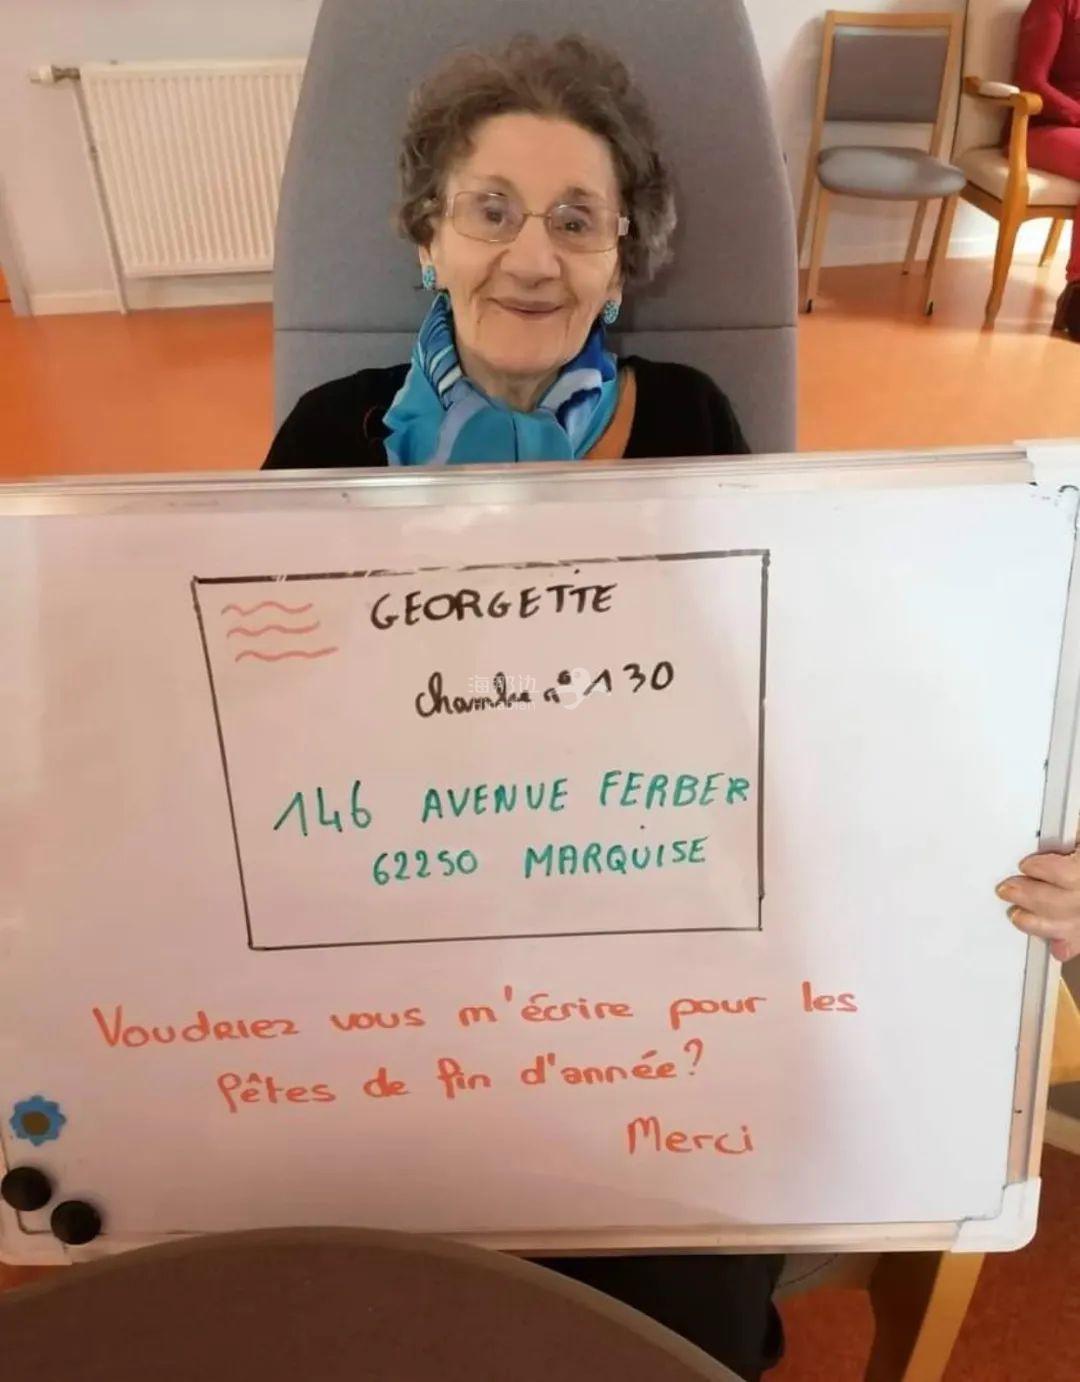 GEORGETTE
chambre n° 130
146 AVENUE FERBER
62250 MARQUISE
Voudriez vous m'écrire pour les
fêtes de fin d'année?
Merci
海那边